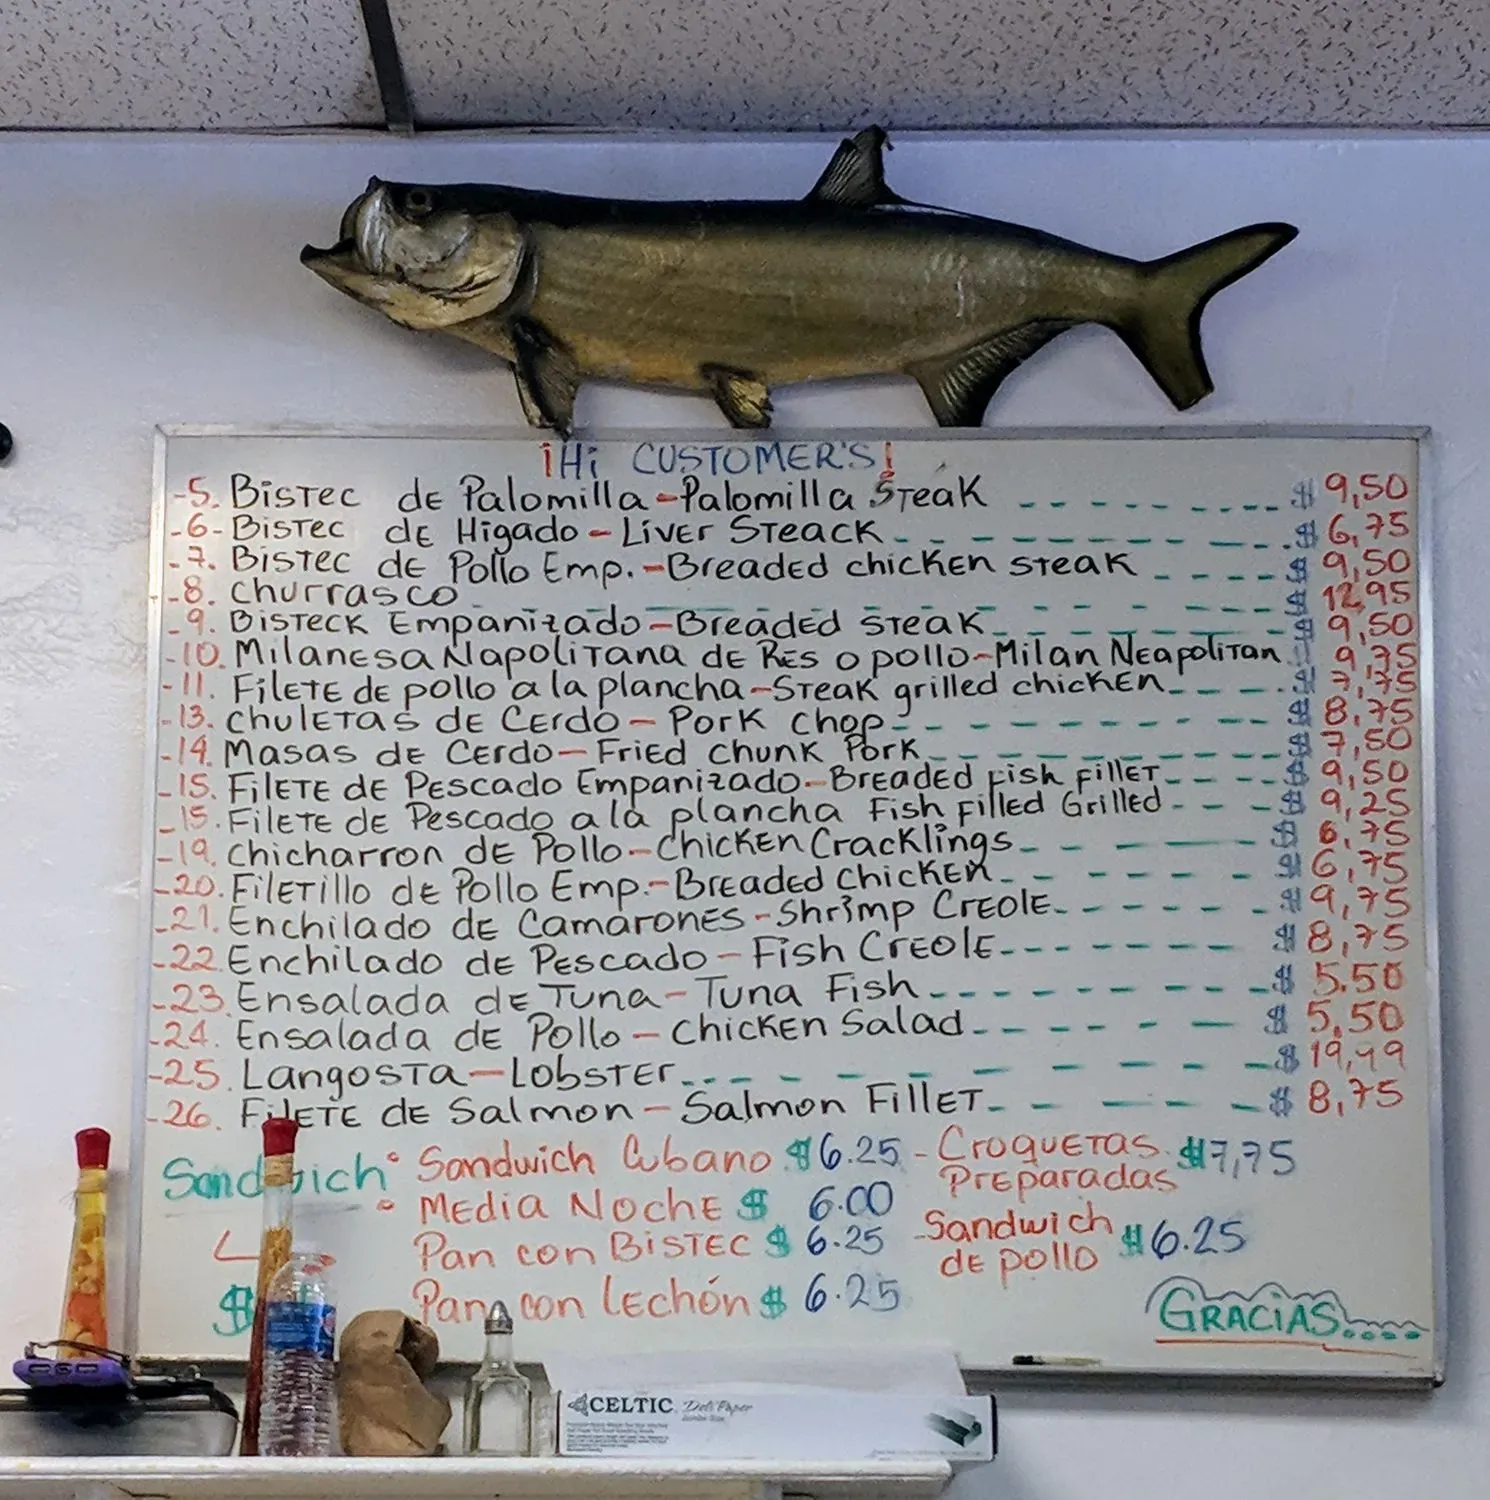 ¡Hi CUSTOMER'S!
-5. Bistec de Palomilla-Palomilla Steak $ 9,50
-6- Bistec de Higado-Liver Steack $ 6,75
-7. Bistec de Pollo Emp.-Breaded chicken steak $ 9,50
-8. Churrasco $ 12,95
-9. Bisteck Empanizado-Breaded steak $ 9,50
-10. Milanesa Napolitana de Res o pollo-Milan Neapolitan $ 9,75
-11. Filete de pollo a la plancha-Steak grilled chicken $ 7,75
-13. Chuletas de Cerdo-Pork Chop $ 8,75
-14. Masas de Cerdo-Fried Chunk Pork $ 7,50
-15. Filete de Pescado Empanizado-Breaded fish fillet $ 9,50
-15. Filete de Pescado a la plancha Fish Filled Grilled $ 9,25
-19. Chicharron de Pollo-Chicken Cracklings $ 6,75
-20. Filetillo de Pollo Emp.-Breaded Chicken $ 6,75
-21. Enchilado de Camarones-Shrimp Creole $ 9,75
-22. Enchilado de Pescado-Fish Creole $ 8,75
-23. Ensalada de Tuna-Tuna Fish $ 5.50
-24. Ensalada de Pollo-Chicken Salad $ 5,50
-25. Langosta-Lobster $ 19,49
-26. Filete de Salmon-Salmon Fillet $ 8,75
Sandwich
Sandwich Cubano $ 6.25
Media Noche $ 6.00
Pan con Bistec $ 6.25
Pan con Lechón $ 6.25
$
- Croquetas Preparadas $ 7,75
- Sandwich de pollo $ 6.25
Gracias.....
CELTIC Deli Paper